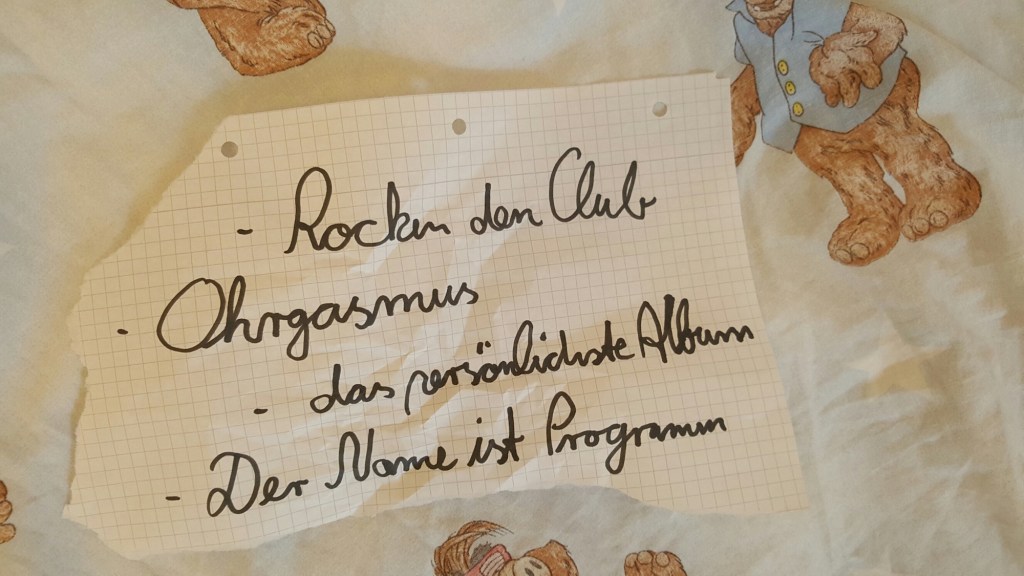 - Rocken den Club
- Ohrgasmus
- das persönlichste Album
- Der Name ist Programm